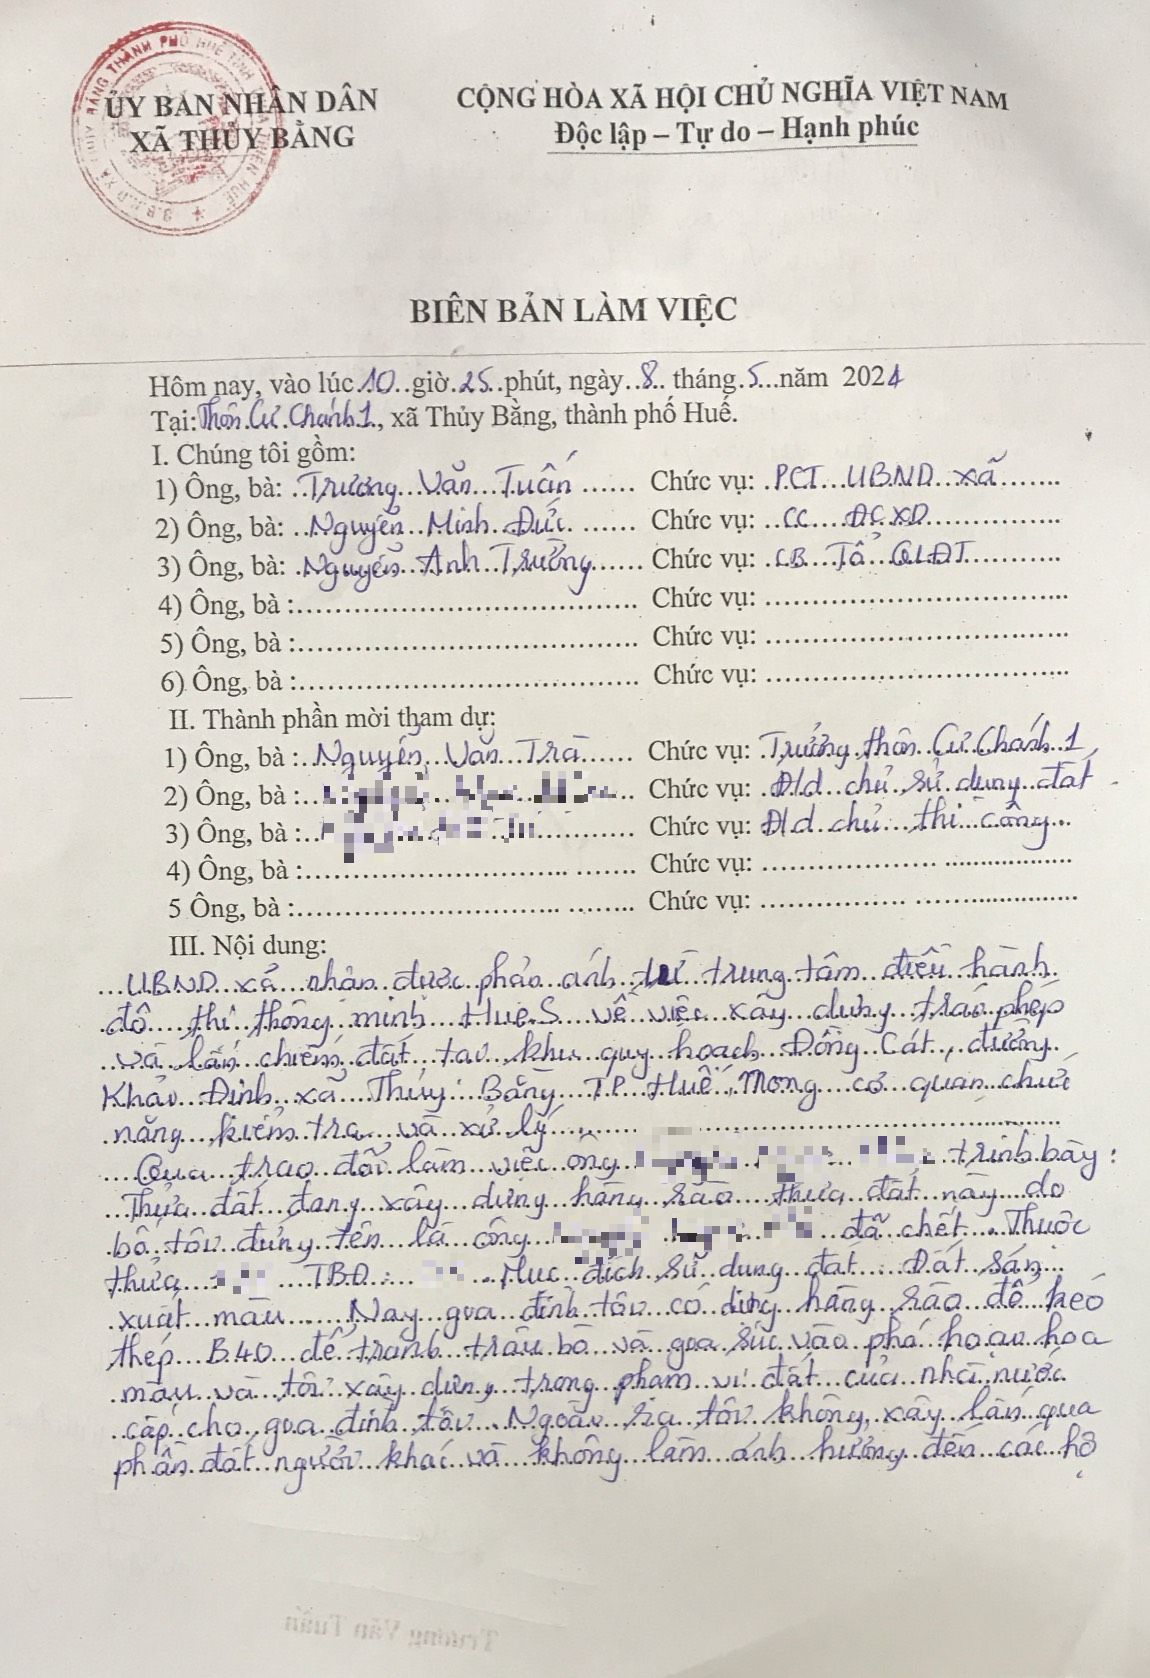 ỦY BAN NHÂN DÂN
XÃ THỦY BẰNG
CỘNG HÒA XÃ HỘI CHỦ NGHĨA VIỆT NAM
Độc lập – Tự do – Hạnh phúc
BIÊN BẢN LÀM VIỆC
Hôm nay, vào lúc 10 giờ 25 phút, ngày 8 tháng 5 năm 2024
Tại: Thôn Cư Chánh 1, xã Thủy Bằng, thành phố Huế.
I. Chúng tôi gồm:
1) Ông, bà: Trương Văn Tuấn Chức vụ: PCT UBND xã
2) Ông, bà: Nguyễn Minh Đức Chức vụ: CC ĐCXD
3) Ông, bà: Nguyễn Anh Trường Chức vụ: CB Tổ QLĐT
4) Ông, bà : Chức vụ:
5) Ông, bà : Chức vụ:
6) Ông, bà : Chức vụ:
II. Thành phần mời tham dự:
1) Ông, bà : Nguyễn Văn Trà Chức vụ: Trưởng thôn Cư Chánh 1
2) Ông, bà : Chức vụ: Đ/d chủ sử dụng đất
3) Ông, bà : Chức vụ: Đ/d chủ thi công
4) Ông, bà : Chức vụ:
5 Ông, bà : Chức vụ:
III. Nội dung:
UBND xã nhận được phản ánh từ trung tâm điều hành
đô thị thông minh Hue.S về việc xây dựng trái phép
và lấn chiếm đất tại khu quy hoạch Đồng Cát, đường
Khải Định xã Thủy Bằng TP Huế, Mong cơ quan chức
năng kiểm tra và xử lý
Qua trao đổi làm việc ông trình bày:
Thửa đất đang xây dựng hàng rào thửa đất này do
bố tôi đứng tên là ông đã chết. Thuộc
thửa TBĐ Mục đích sử dụng đất: Đất sản
xuất màu. Nay gia đình tôi có dựng hàng rào để kéo
thép B40 để tránh trâu bò và gia súc vào phá hoại hoa
màu và tôi xây dựng trong phạm vi đất của nhà nước
cấp cho gia đình tôi. Ngoài ra tôi không xây lấn qua
phần đất người khác và không làm ảnh hưởng đến các hộ
Trương Văn Tuấn